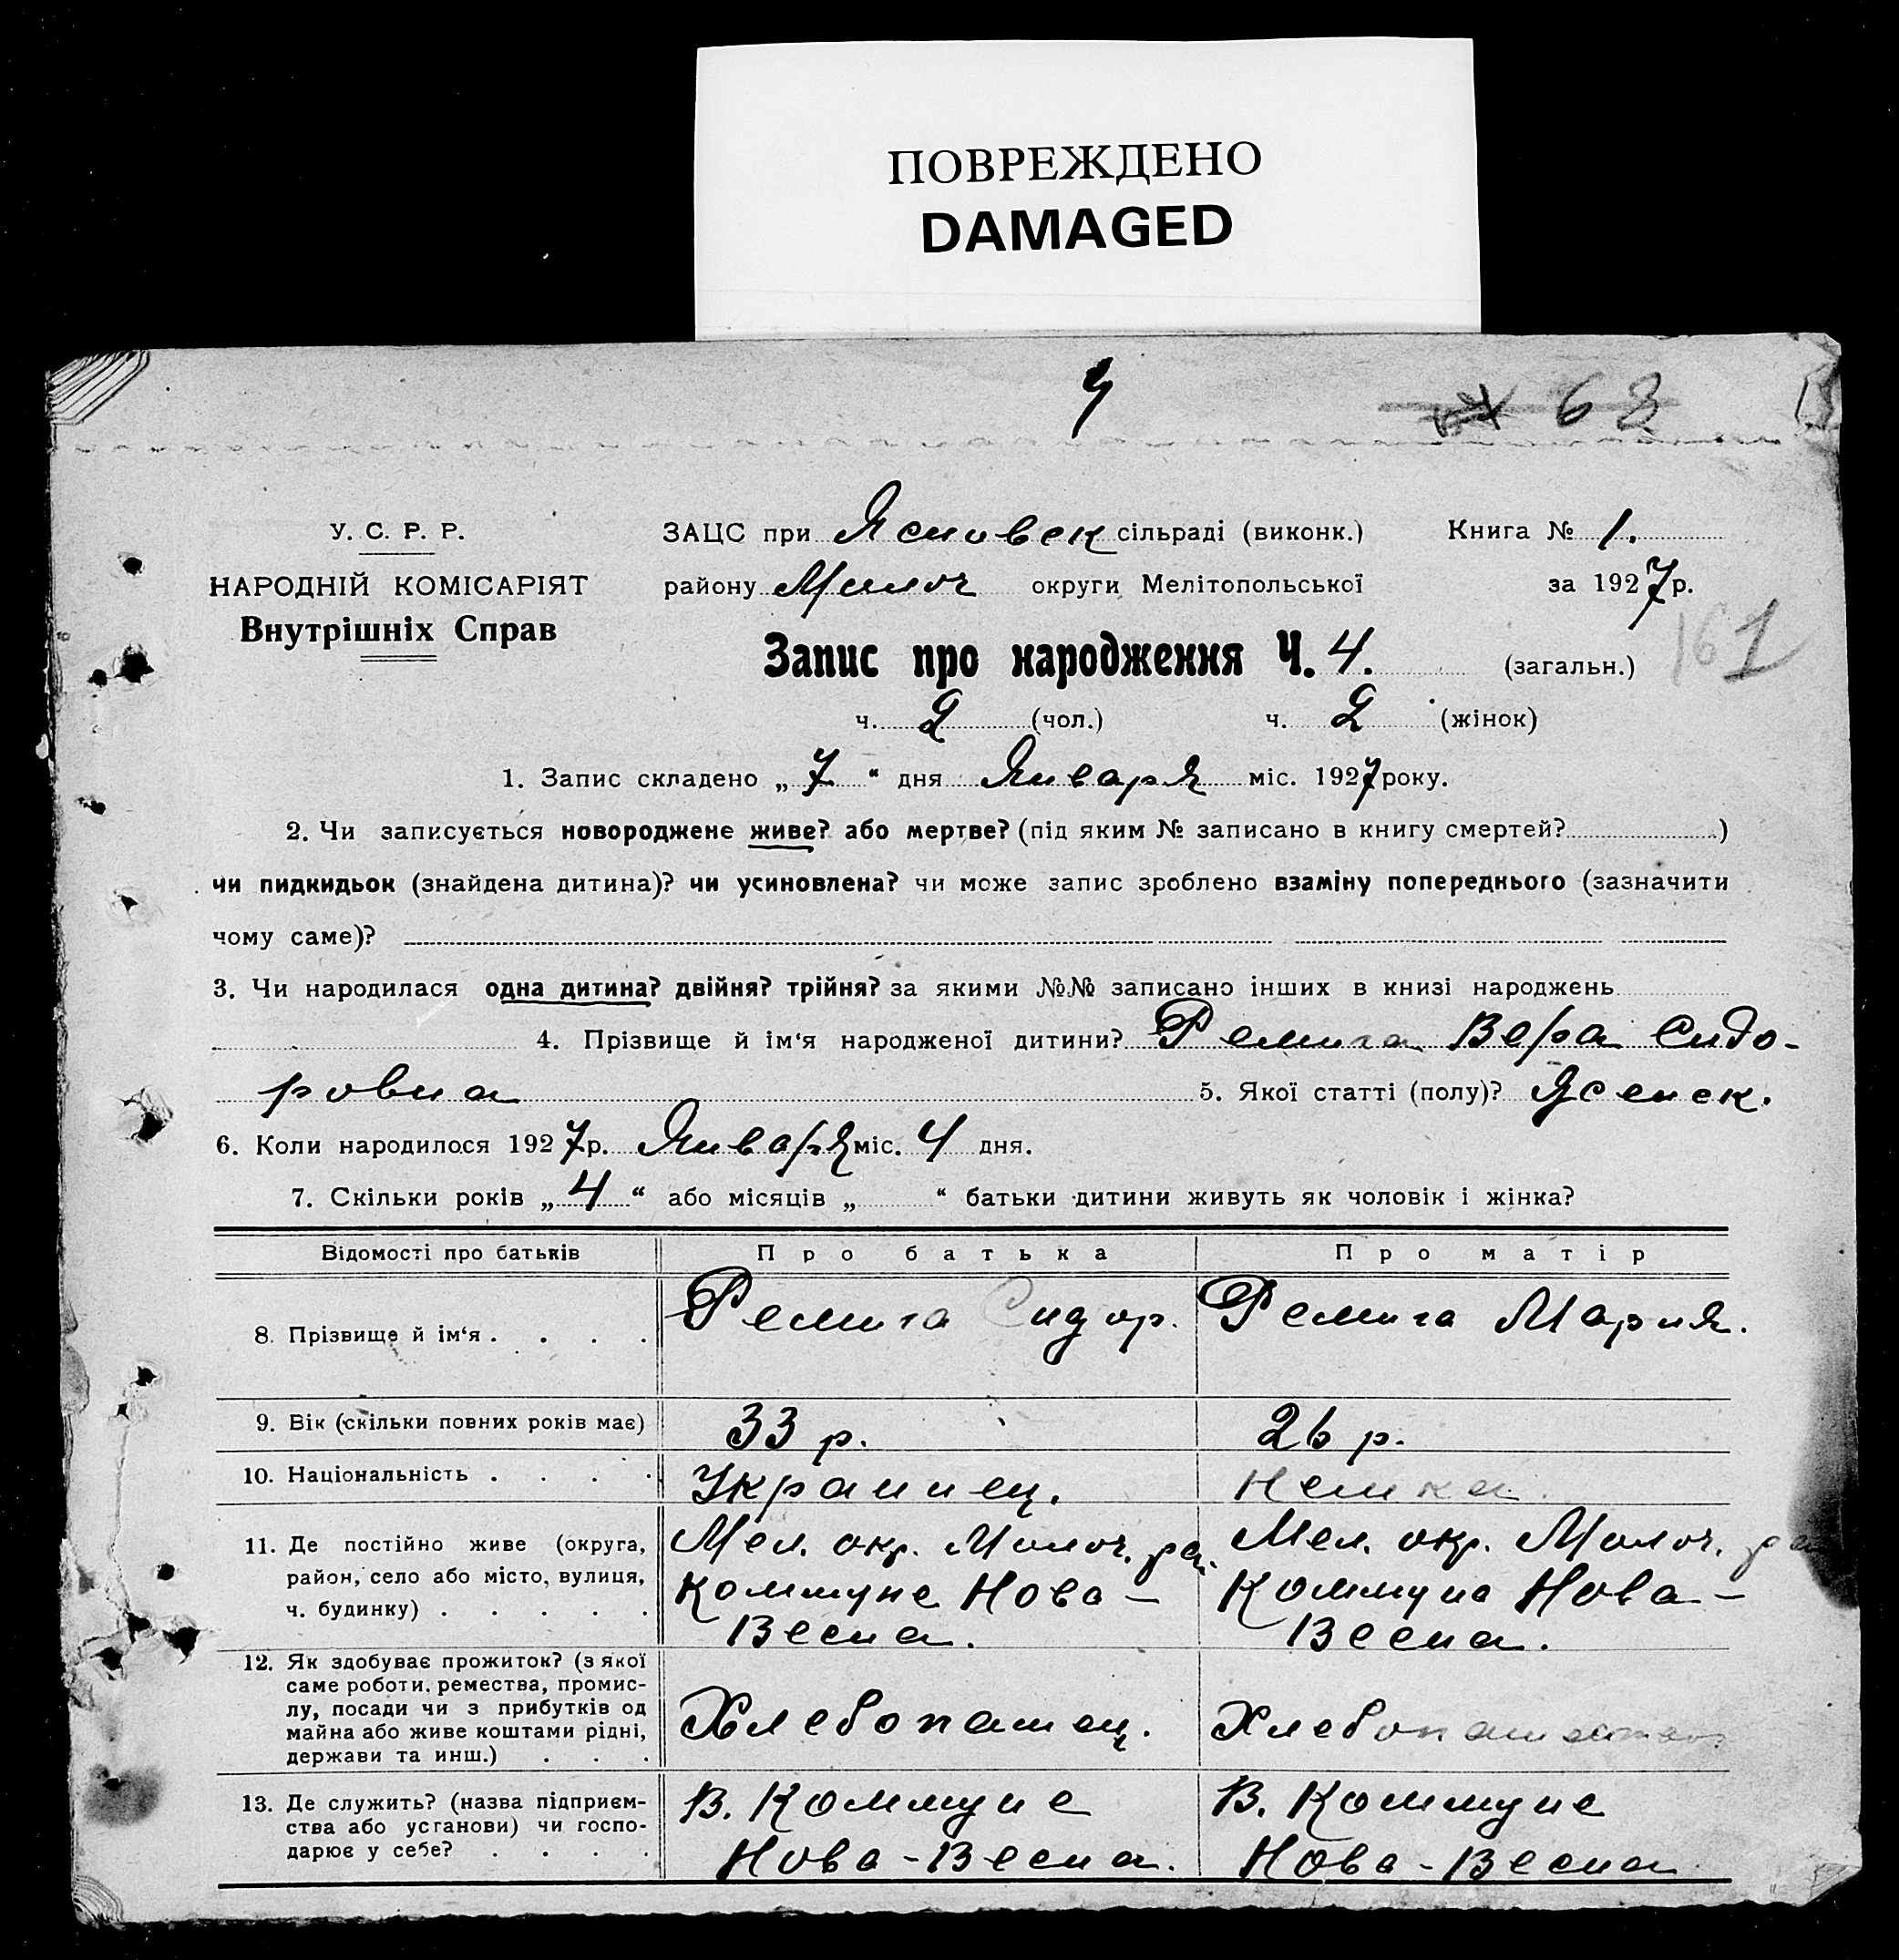 ПОВРЕЖДЕНО
DAMAGED
4
68
У. С. Р. Р.
НАРОДНІЙ КОМІСАРІЯТ
Внутрішніх Справ
ЗАЦС при Ясиовек сільраді (виконк.)
Книга № 1.
району Молоч округи Мелітопольської
за 1927р.
161
Запис про народження Ч. 4. (загальн.)
ч. 2 (чол.) ч. 2 (жінок)
1. Запис складено „ 7 “ дня Января міс. 1927 року.
2. Чи записується новороджене живе? або мертве? (під яким № записано в книгу смертей? )
чи пидкидьок (знайдена дитина)? чи усиновлена? чи може запис зроблено взаміну попереднього (зазначити
чому саме)?
3. Чи народилася одна дитина? двійня? трійня? за якими №№ записано інших в книзі народжень
4. Прізвище й ім‘я народженої дитини? Ремига Вера Сидо-
ровна 5. Якої статті (полу)? Женск.
6. Коли народилося 1927р. Января міс. 4 дня.
7. Скільки років „ 4 “ або місяців „ “ батьки дитини живуть як чоловік і жінка?
Відомості про батьків Про батька Про матір
8. Прізвище й ім‘я . . . . Ремига Сидор. Ремига Мария.
9. Вік (скільки повних років має) 33 р. 26 р.
10. Національність . . . . Украинец. Немка.
11. Де постійно живе (округа,
район, село або місто, вулиця,
ч. будинку) . . . . .
Мел. окр. Молоч. ра.
Коммуне Нова-
Весна.
Мел. окр. Молоч. ра
Коммуна Нова-
Весна.
12. Як здобуває прожиток? (з якої
саме роботи, ремества, промис-
лу, посади чи з прибутків од
майна або живе коштами рідні,
держави та инш.) . . .
Хлебопашец.
13. Де служить? (назва підприєм-
ства або установи) чи госпо-
дарює у себе? . . . .
В. Коммуне
Нова-Весна.
В. Коммуне
Нова-Весна